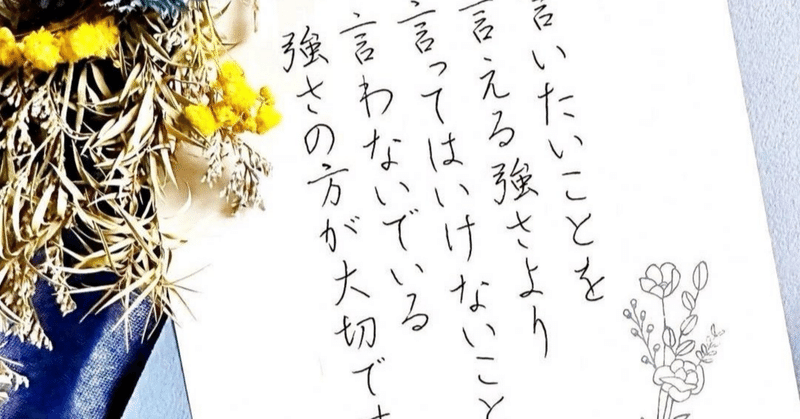 言いたいことを
言える強さより
言ってはいけないこと
言わないでいる
強さの方が大切で